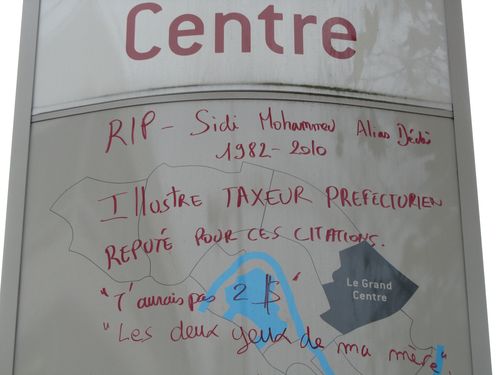 Centre
RIP - Sidi Mohammed Alias Dédé
1982-2010
Illustre TAXEUR PREFECTORIEN
REPUTÉ POUR CES CITATIONS.
"T'aurais pas 2 $"
Le Grand
Centre
"Les deux yeux de ma mère"